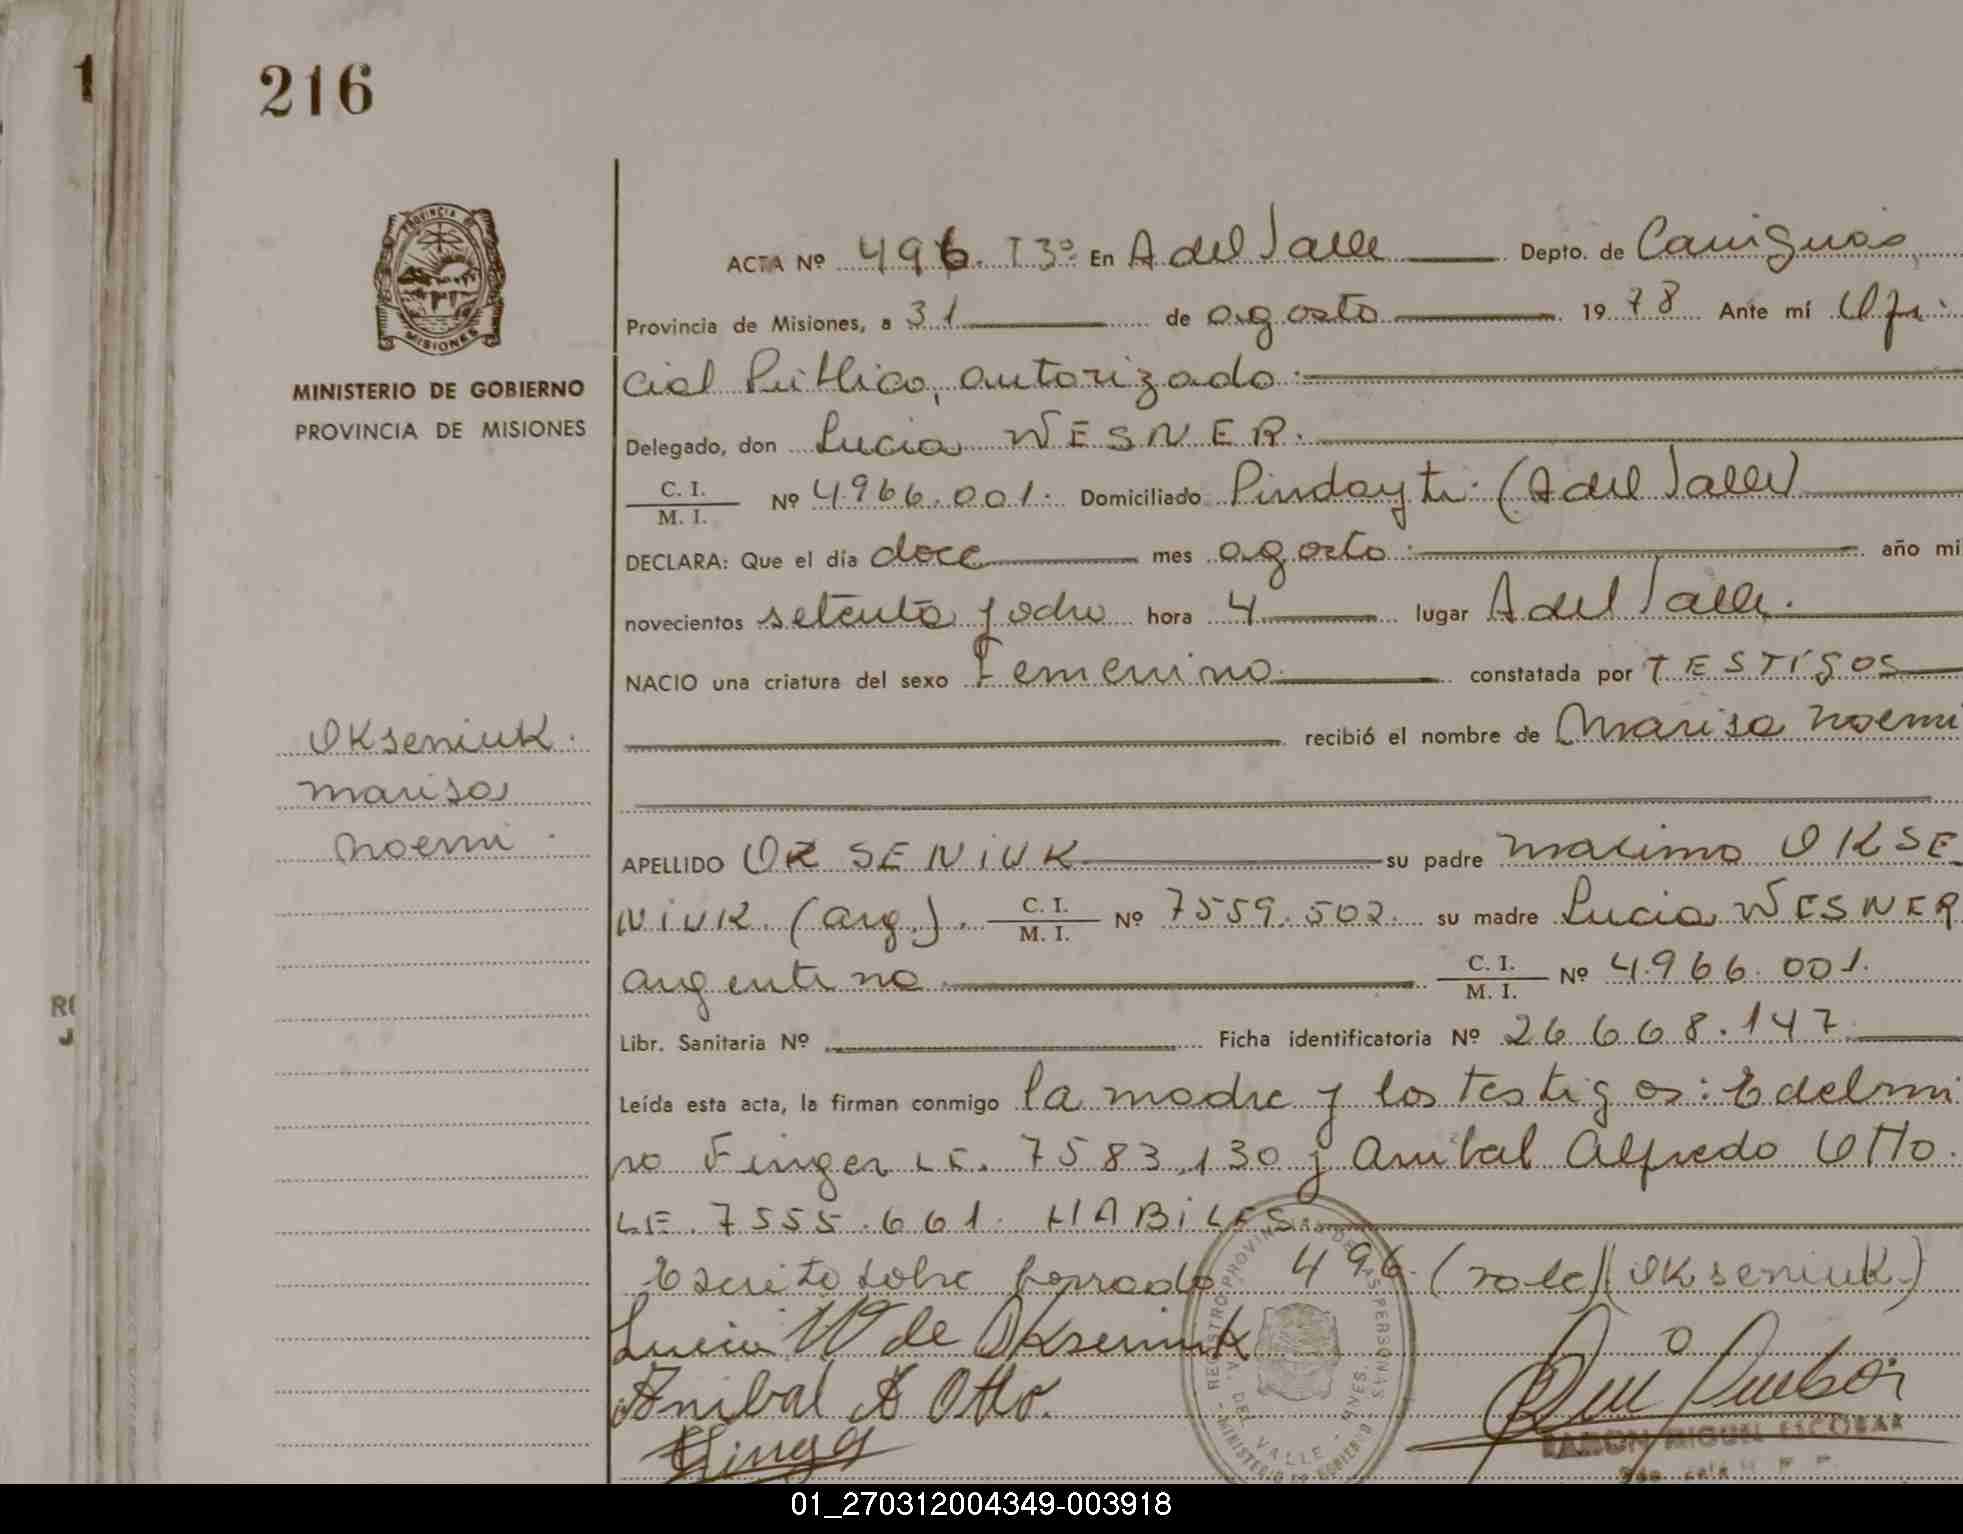 1
216
PROVINCIA DE
MISIONES
MINISTERIO DE GOBIERNO
PROVINCIA DE MISIONES
ACTA Nº 496. T3º En A del Valle Depto. de Cainguás
Provincia de Misiones, a 31 de agosto 1978 Ante mí Ofi-
cial Público, autorizado:
Delegado, don Lucia WESNER.
C. I. / M. I. Nº 4.966.001. Domiciliado Pindayti (A del Valle)
DECLARA: Que el día doce mes agosto: año mi
novecientos setenta y ocho hora 4 lugar A del Valle.
NACIO una criatura del sexo Femenino. constatada por TESTIGOS
recibió el nombre de Marisa Noemi
Okseniuk.
Marisa
Noemi.
APELLIDO OKSENIUK su padre Maximo OKSE
NIUK. (arg.). C. I. / M. I. Nº 7559.502. su madre Lucia WESNER
argentina C. I. / M. I. Nº 4.966.001.
Libr. Sanitaria Nº Ficha identificatoria Nº 26.668.147.
Leída esta acta, la firman conmigo la madre y los testigos: Edelmi
ro Finger LE. 7583.130 y Anibal Alfredo Otto.
LE. 7555.661. HABILES.
Escrito sobre borrado 496. (vale) (Okseniuk.)
Lucia W de Okseniuk
Anibal A Otto.
Finger
REGISTRO PROVINCIAL DE LAS PERSONAS
DEL VALLE - MNES.
MINISTERIO DE GOBIERNO
RAMON MIGUEL ESCOBAR
RO
J
01_270312004349-003918